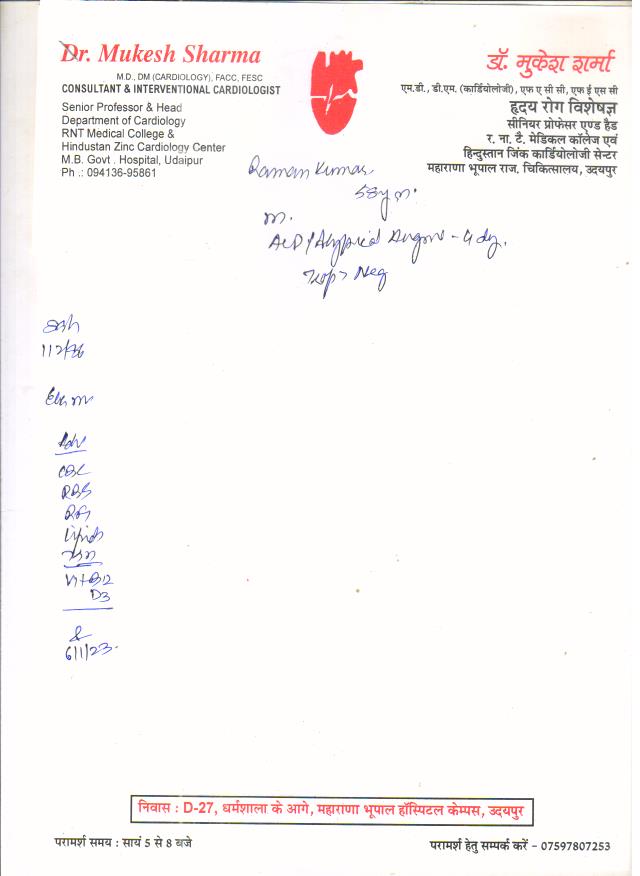 Dr. Mukesh Sharma
M.D., DM (CARDIOLOGY), FACC, FESC
CONSULTANT & INTERVENTIONAL CARDIOLOGIST
Senior Professor & Head
Department of Cardiology
RNT Medical College &
Hindustan Zinc Cardiology Center
M.B. Govt . Hospital, Udaipur
Ph .: 094136-95861
डॉ. मुकेश शर्मा
एम.डी., डी.एम. (कार्डियोलोजी), एफ ए सी सी, एफ ई एस सी
हृदय रोग विशेषज्ञ
सीनियर प्रोफेसर एण्ड हैड
र. ना. टै. मेडिकल कॉलेज एवं
हिन्दुस्तान जिंक कार्डियोलोजी सेन्टर
महाराणा भूपाल राज. चिकित्सालय, उदयपुर
Raman Kumar
58y m.
m.
Atypical Angina
Trop > Neg
Adv
CBC
RBS
Lipids
Vit B12
D3
6/1/23.
निवास : D-27, धर्मशाला के आगे, महाराणा भूपाल हॉस्पिटल केम्पस, उदयपुर
परामर्श समय : सायं 5 से 8 बजे
परामर्श हेतु सम्पर्क करें - 07597807253